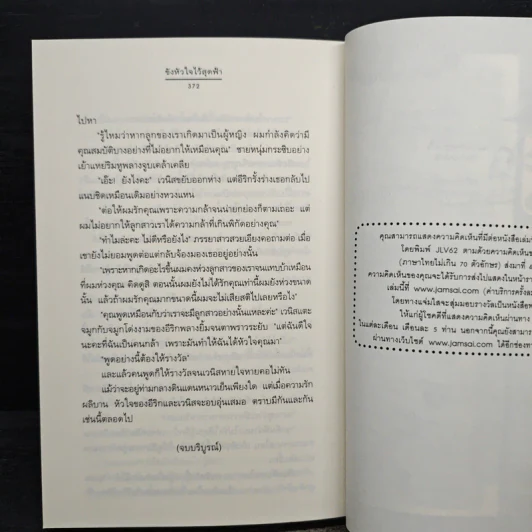 ชิงหัวใจไว้สุดฟ้า
372
ไปหา
“รู้ไหมว่าหากลูกของเราเกิดมาเป็นผู้หญิง ผมกำลังคิดว่ามี
คุณสมบัติบางอย่างที่ไม่อยากให้เหมือนคุณ” ชายหนุ่มกระซิบอย่าง
เย้าแหย่ริมหูพลางจูบเคล้าเคลีย
“เอ๊ะ! ยังไงคะ” เวนิสขยับออกห่าง แต่อีริกรั้งร่างเธอกลับไป
แนบชิดเหมือนเดิมอย่างหวงแหน
“ต่อให้ผมรักคุณเพราะความกล้าจนน่ายกย่องก็ตามเถอะ แต่
ผมไม่อยากให้ลูกสาวเราได้ความกล้าที่เกินพิกัดอย่างคุณ”
“ทำไมล่ะคะ ไม่ดีหรือยังไง” ภรรยาสาวสวยเอียงคอถามต่อ เมื่อ
เขายังไม่ยอมพูดต่อแต่กลับจ้องมองเธออยู่อย่างนั้น
“เพราะหากเกิดอะไรขึ้นผมคงห่วงลูกสาวของเราจนแทบบ้าเหมือน
ที่ผมห่วงคุณ คิดดูสิ ตอนนั้นผมยังไม่ได้รักคุณเท่านี้ผมยังห่วงขนาด
นั้น แล้วถ้าผมรักคุณมากขนาดนี้ผมจะไม่เสียสติไปเลยหรือไง”
“คุณพูดเหมือนกับว่าเราจะมีลูกสาวอย่างนั้นแหละค่ะ” เวนิสแตะ
จมูกกับจมูกโด่งงามของอีริกพลางยิ้มจนตาพราวระยับ “แต่ฉันดีใจ
นะคะที่ฉันเป็นคนกล้า เพราะมันทำให้ฉันได้หัวใจคุณมา”
“พูดอย่างนี้ต้องให้รางวัล”
และแล้วคนพูดก็ให้รางวัลจนเวนิสหายใจหายคอไม่ทัน
แม้ว่าจะอยู่ท่ามกลางดินแดนหนาวเย็นเพียงใด แต่เมื่อความรัก
ผลิบาน หัวใจของอีริกและเวนิสจะอบอุ่นเสมอ ตราบมีกันและกัน
เช่นนี้ตลอดไป
(จบบริบูรณ์)
คุณสามารถแสดงความคิดเห็นที่มีต่อหนังสือเล่ม
โดยพิมพ์ JLV62 ตามด้วยความคิดเห็น
(ภาษาไทยไม่เกิน 70 ตัวอักษร) ส่งมาที่
ความคิดเห็นของคุณจะได้รับการส่งไปแสดงในหน้า
เล่มนี้ที่ www.jamsai.com (ค่าบริการครั้ง
โดยทางแจ่มใสจะสุ่มมอบรางวัลเป็นหนังสือ
ให้แก่ผู้โชคดีที่แสดงความคิดเห็นผ่านทาง
ในแต่ละเดือน เดือนละ 5 ท่าน นอกจากนี้คุณยังสามารถ
ผ่านทางเว็บไซต์ www.jamsai.com ได้อีกช่องทาง